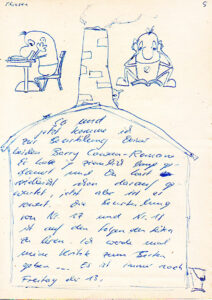 5
So und
jetzt komme ich
zur Beurteilung Deiner
beiden Barry Romane
Es hatte ziemlich lang ge-
dauert und Du hast
vielleicht schon darauf ge-
wartet jetzt aber ist es
soweit. Die Beurteilung
von Nr. und Nr.
ist auf den folgenden
zu lesen. Ich werde
meine Kritik zum "Besten"
geben ... Es ist immer noch
Freitag der 13.